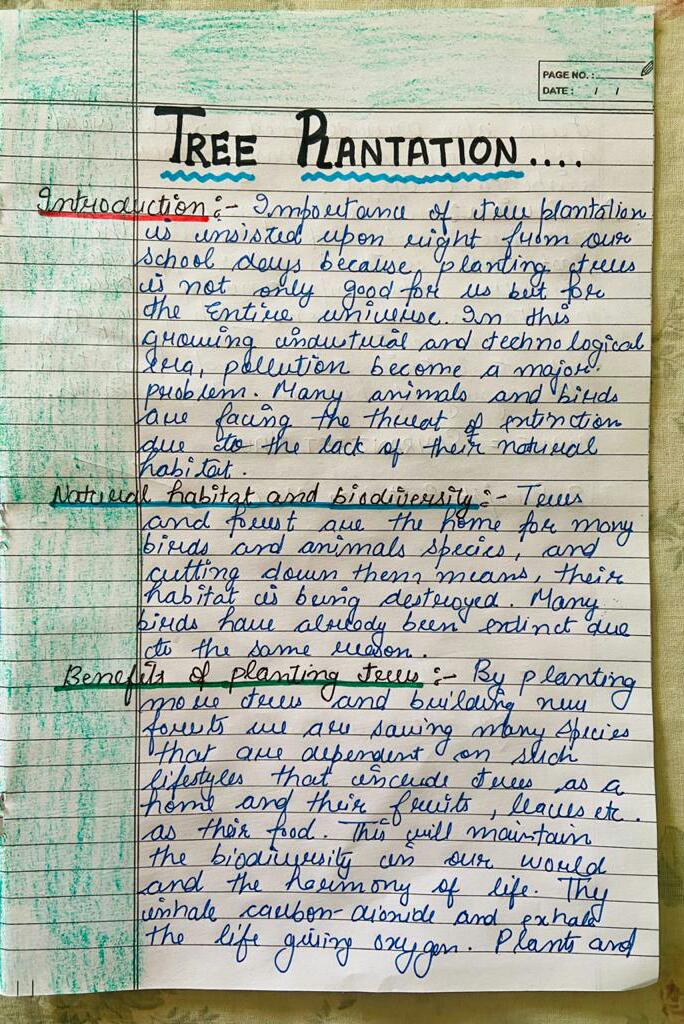 PAGE NO.:
DATE: / /
TREE PLANTATION....
Introduction:- Importance of tree plantation
is insisted upon right from our
school days because planting trees
is not only good for us but for
the Entire universe. In this
growing industrial and technological
era, pollution become a major
problem. Many animals and birds
are facing the threat of extinction
due to the lack of their natural
habitat.
Natural habitat and biodiversity:- Trees
and forest are the home for many
birds and animals species, and
cutting down them means, their
habitat is being destroyed. Many
birds have already been extinct due
to the same reason.
Benefits of planting trees:- By planting
more trees and building new
forests we are saving many species
that are dependent on such
lifestyles that include trees as a
home and their fruits, leaves etc.
as their food. This will maintain
the biodiversity in our world
and the harmony of life. They
inhale carbon-dioxide and exhale
the life giving oxygen. Plants and